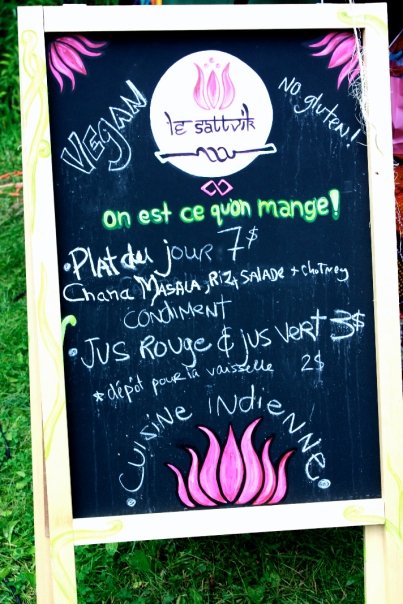 VEGAN
NO gluten!
le sattvik
on est ce quon mange!
• Plat du jour 7$
Chana MASALA, RIZ, SALADE + chotney
CONDIMENT
• Jus Rouge & jus vert 3$
* dépôt pour la vaisselle 2$
• Cuisine indienne •